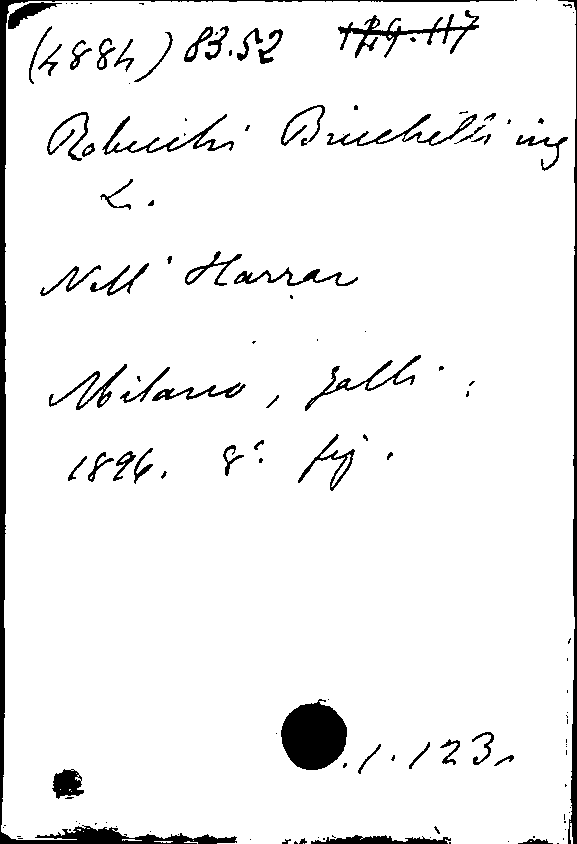 (4884) 83.52 129.117
Robecchi Bricchetti ing
L.
Nell' Harrar
Milano, Galli.,
1896. 8º. fig.
.1.123.